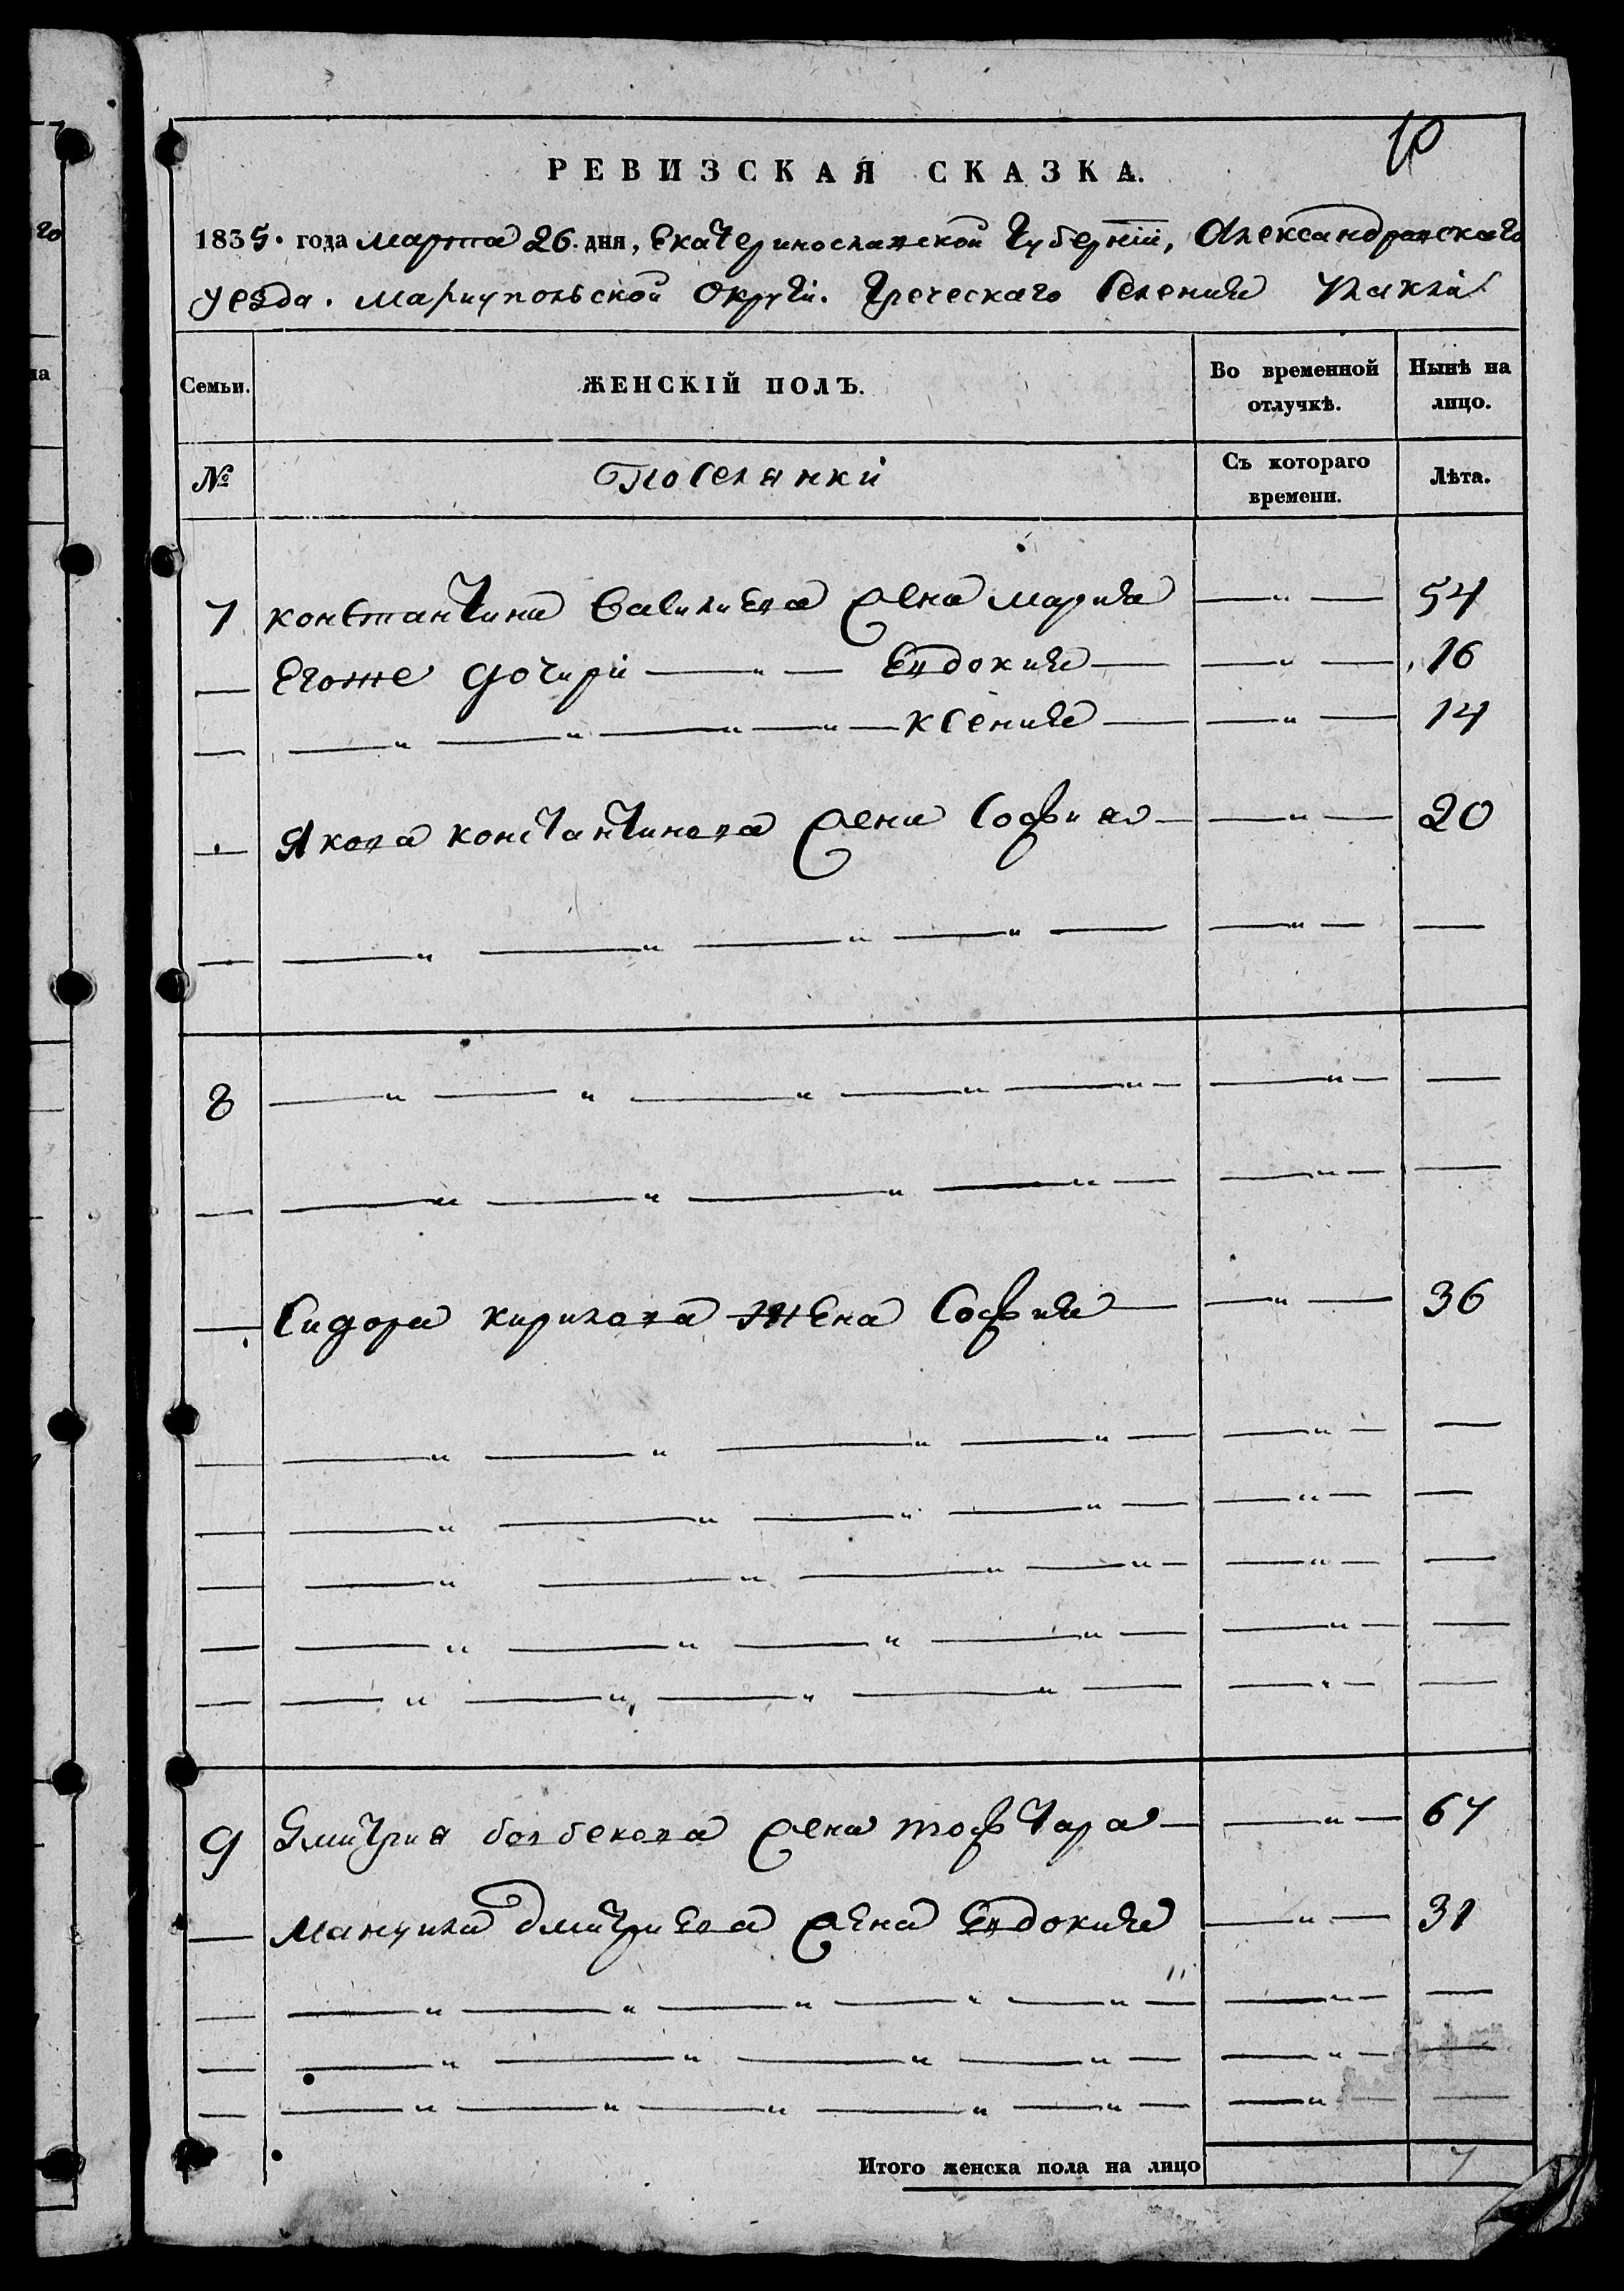 10
РЕВИЗСКАЯ СКАЗКА.
1835. года марта 26. дня, Екатеринославской Губернiи, Александровскаго
уезда. Мариупольской Округи. Греческаго Селения
Семьи. ЖЕНСКIЙ ПОЛЪ. Во временной отлучкѣ. Нынѣ на лицо.
№ Поселянки Съ котораго времени. Лѣта.
7 Константина Василиева жена Мария — " — 54
— Егоже дочери — " — Евдокия — — " — 16
— — " — " — " — " — Ксения — — " — 14
— Якова Константинова жена София — — " — 20
— — " — " — " — " — — " — —
8 — " — " — " — " — " — — " — —
— — " — " — " — " — — " — —
— Сидора Кирилова жена София — — " — 36
— — " — " — " — " — — " — —
— — " — " — " — " — — " — —
— — " — " — " — " — — " — —
— — " — " — " — " — — " — —
— — " — " — " — " — — " — —
9 Дмитрия жена — — " — 67
— Мануила Дмитриева жена Евдокия — " — 31
— — " — " — " — " — " — — " — —
— — " — " — " — " — — " — —
— — " — " — " — " — " — — " — —
Итого женска пола на лицо 7